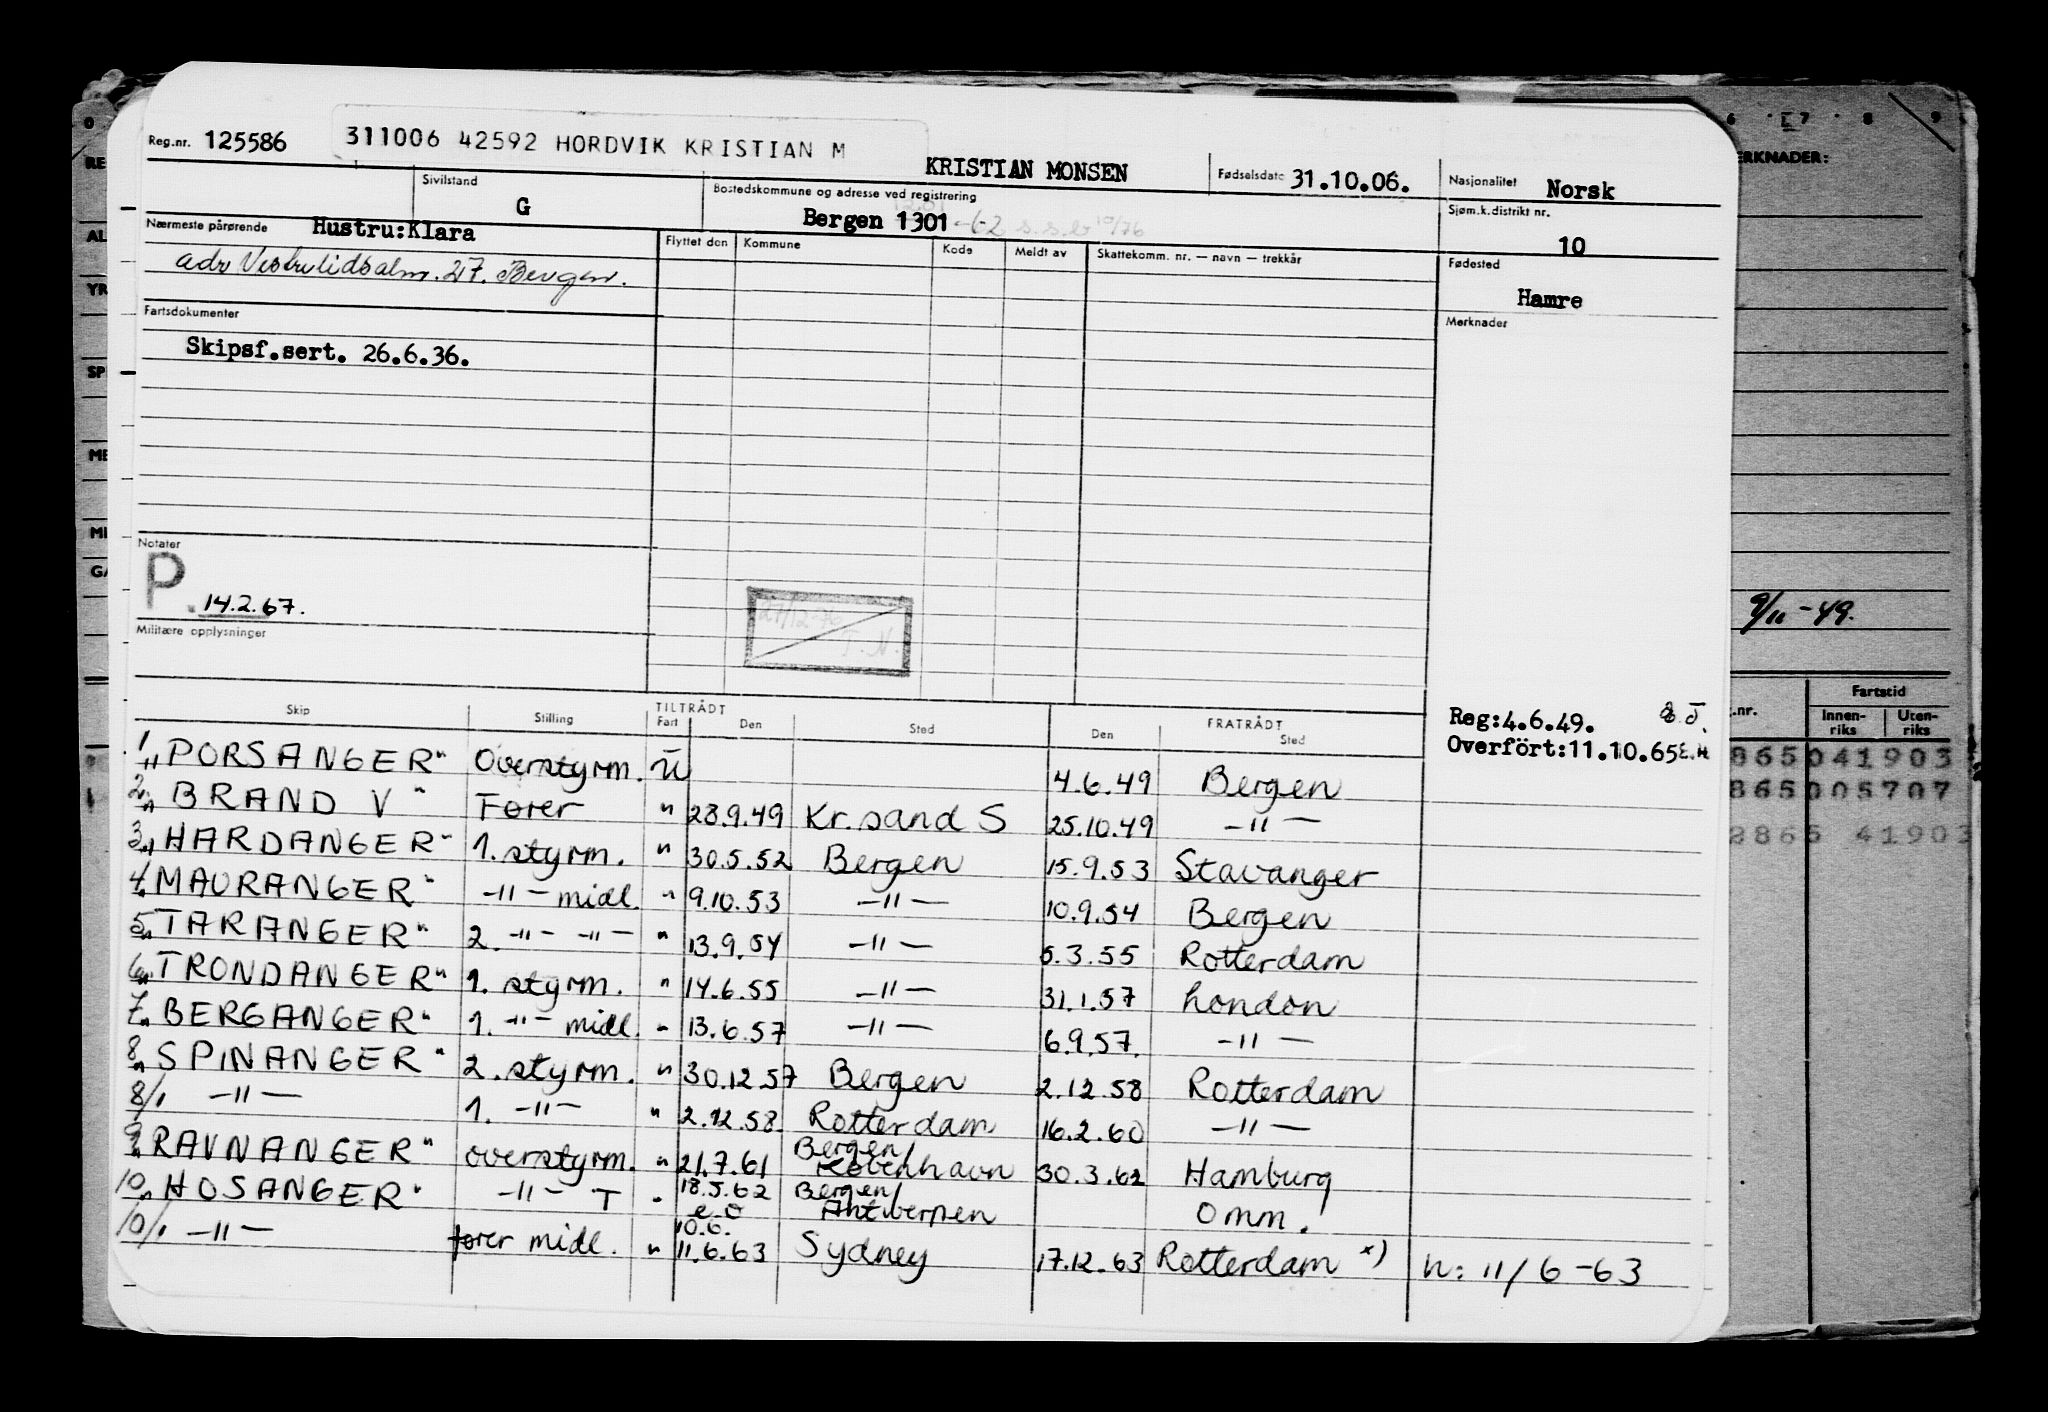 Reg.nr. 125586 311006 42592 HORDVIK KRISTIAN M KRISTIAN MONSEN Fødselsdato 31.10.06. Nasjonalitet Norsk
Sivilstand G Bostedskommune og adresse ved registrering Bergen 1301 -62 Sjøm.k.distrikt nr. 10
Nærmeste pårørende Hustru:Klara
Flyttet den Kommune Kode Meldt av Skattekomm. nr. — navn — trekkår Fødested
27. Bergen.
Hamre
Fartsdokumenter Merknader
Skipsf.sert. 26.6.36.
Notater
P. 14.2.67.
27/12-76
T.N.
Militære opplysninger
Reg:4.6.49.
Overført:11.10.65 E.H
Skip Stilling TILTRÅDT Fart Den Sted FRATRÅDT Den Sted
1 "PORSANGER" Overstyrm. U 4.6.49 Bergen
2. "BRAND V" Fører " 28.9.49 Kr.sand S 25.10.49 -"-
3. "HARDANGER" 1. styrm. " 30.5.52 Bergen 15.9.53 Stavanger
4. "MAURANGER" -"- midl. " 9.10.53 -"- 10.9.54 Bergen
5. "TARANGER" 2. -"- -"- " 13.9.54 -"- 5.3.55 Rotterdam
6. "TRONDANGER" 1. styrm. " 14.6.55 -"- 31.1.57 London
7. "BERGANGER" 1. -"- midl. " 13.6.57 -"- 6.9.57. -"-
8. "SPINANGER" 2. styrm. " 30.12.57 Bergen 2.12.58 Rotterdam
8/1 -"- 1. -"- " 2.12.58. Rotterdam 16.2.60 -"-
9. "RAVNANGER" overstyrm. " 21.7.61 Bergen/København 30.3.62 Hamburg
10. "HOSANGER" -"- T " 18.5.62 Bergen/Antwerpen Omm.
10/1 -"- fører midl. " 10.6. 11.6.63 Sydney 17.12.63 Rotterdam x) n: 11/6-63
6 7 8 9
RKNADER:
9/11-49.
.nr. Fartstid
Innenriks Utenriks
865 041903
865 005707
8865 41903